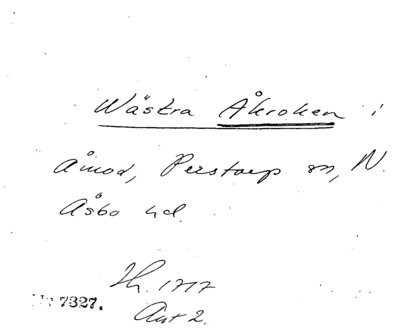 Wästra Åkroken i
Åmod, Perstorp sn, N.
Åsbo hd.
Th. 1717
Ant 2.
7327.